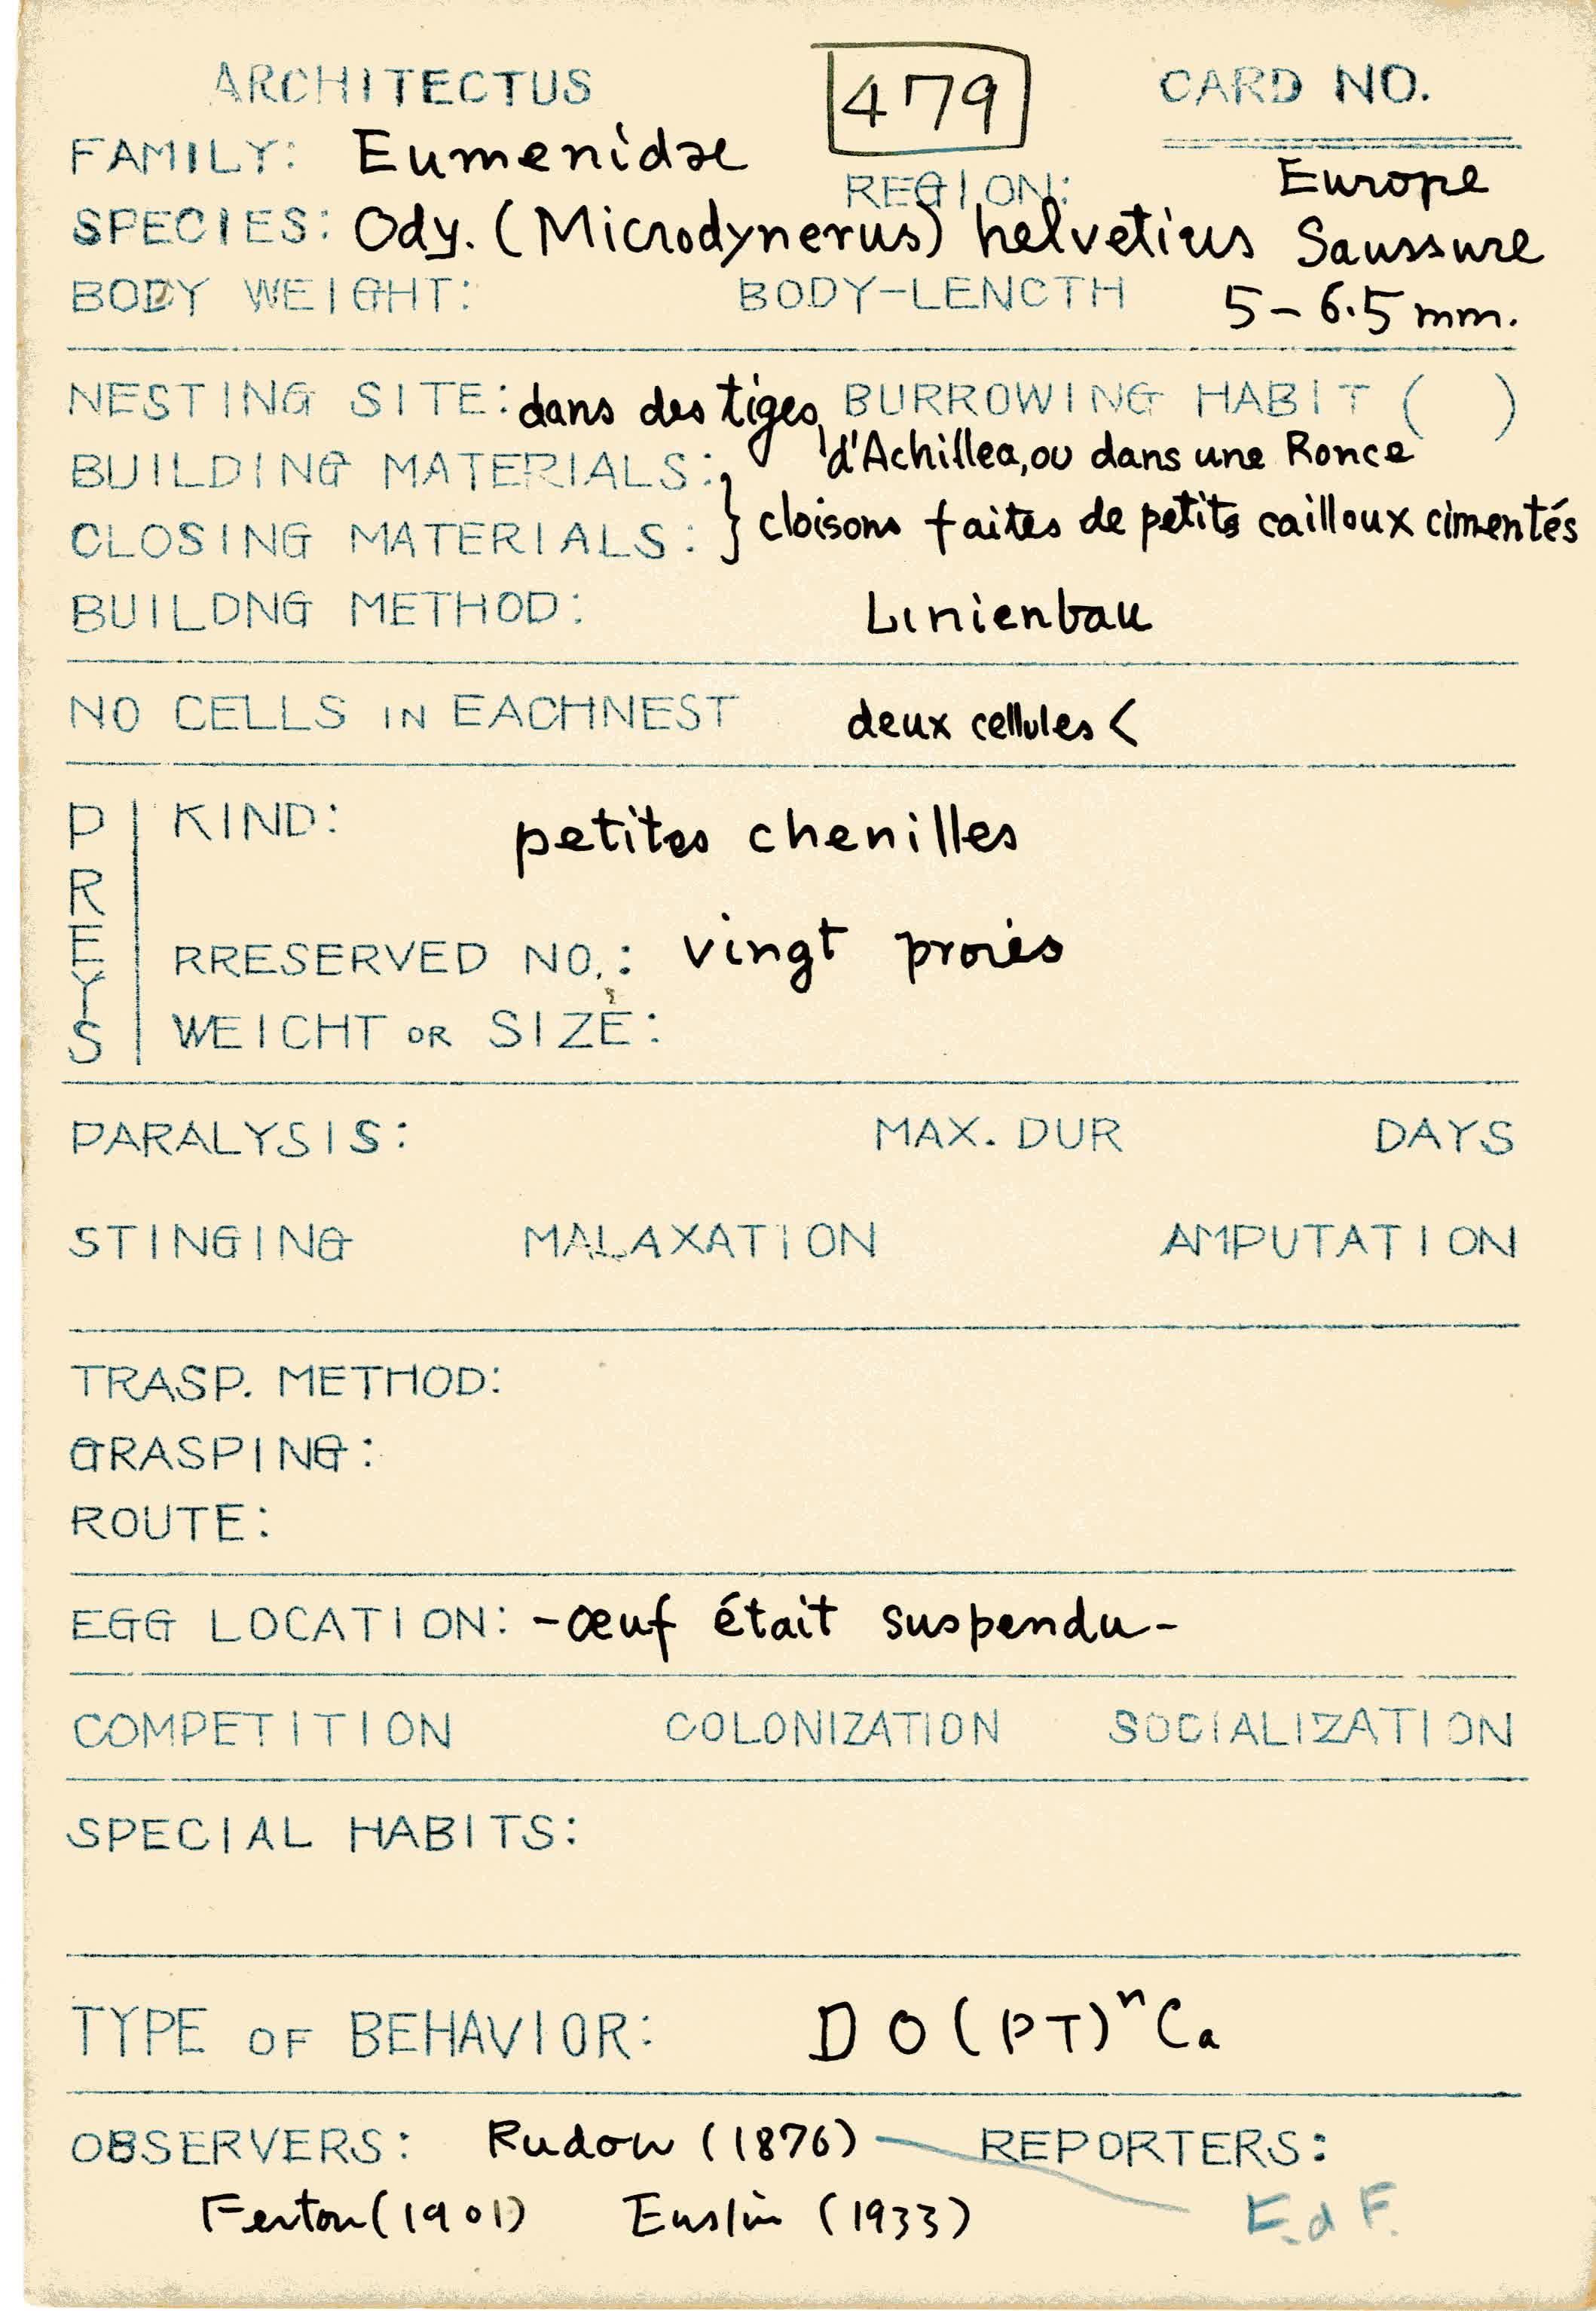 ARCHITECTUS 479 CARD NO.
FAMILY: Eumenidae
REGION: Europe
SPECIES: Ody. (Microdynerus) helvetius Saussure
BODY WEIGHT: BODY-LENCTH 5-6.5 mm.
NESTING SITE: dans des tiges BURROWING HABIT ( )
d'Achillea, ou dans une Ronce
BUILDING MATERIALS:
CLOSING MATERIALS: } cloisons faites de petits cailloux cimentés
BUILDNG METHOD: Linienbau
NO CELLS IN EACHNEST deux cellules <
PREYS
KIND: petites chenilles
RRESERVED NO.: vingt proies
WEICHT OR SIZE:
PARALYSIS: MAX. DUR DAYS
STINGING MALAXATION AMPUTATION
TRASP. METHOD:
GRASPING:
ROUTE:
EGG LOCATION: -œuf était suspendu-
COMPETITION COLONIZATION SOCIALIZATION
SPECIAL HABITS:
TYPE OF BEHAVIOR: D O (PT)ⁿCa
OBSERVERS: Rudow (1876) — REPORTERS:
Ferton (1901) Enslin (1933) E.d F.